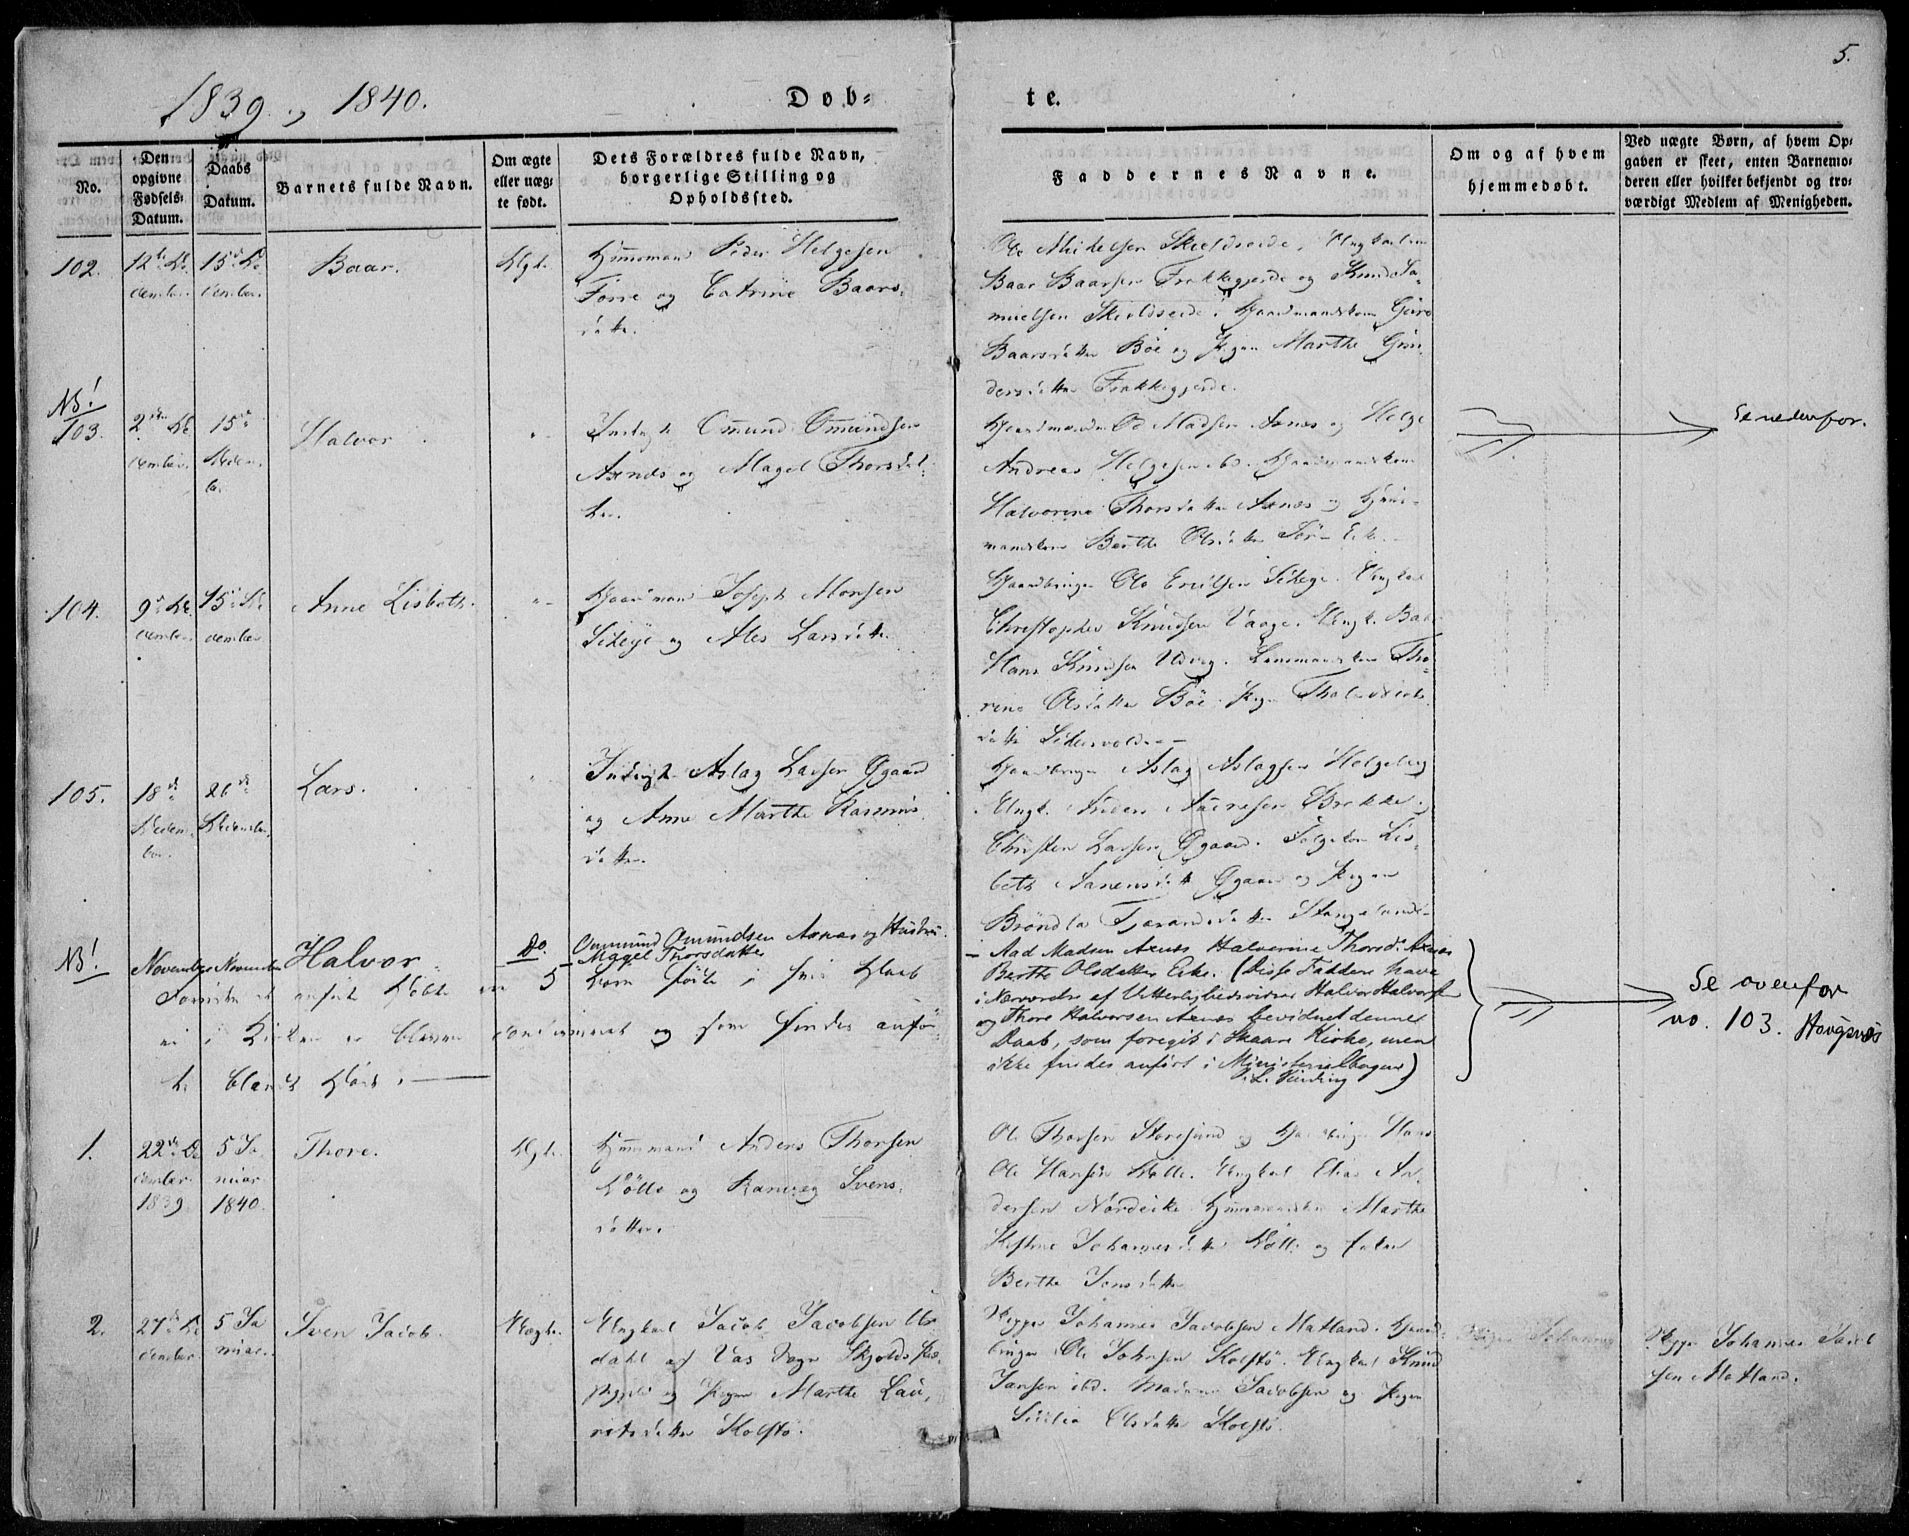 5.
1839 og 1840.
Døb-
te.
No.
Den
opgivne
Fødsels-
Datum.
Daabs
Datum.
Barnets fulde Navn.
Om ægte
eller uæg-
te født.
Dets Forældres fulde Navn,
borgerlige Stilling og
Opholdssted.
Faddernes Navne.
Om og af hvem
hjemmedøbt.
Ved uægte Børn, af hvem Op-
gaven er skeet, enten Barnemo-
deren eller hvilket bekjendt og tro-
værdigt Medlem af Menigheden.
102.
12te De
cember
15de De
cember.
Baar.
Ægte.
Huusmand Peder Helgesen
Førre og Catrine Baars-
datter.
Ole Mikelsen Skieldseide, Ungkarlene
Baar Baarsen Frakkegjerde og Knud Sa-
muelsen Skieldseide, Gaardmandskone Guro
Baarsdatter Böe og Pigen Marthe Gun-
dersdatter Frakkegjerde.
NB!
103.
2den De
cember.
15de
Decem-
ber.
Halvor
Inderst Omund Omundsen
Axnæs og Magel Thorsdat-
ter.
Gaardmændene Od Madsen Axnæs og Helge
Andreas Helgesen ibd. Gaardmandskone
Halvorine Thorsdatter Axnæs og Huus-
mandskone Berthe Olsdatter Sör-Eike.
Se nedenfor.
104.
9de De
cember
15de De
cember
Anne Lisbeth.
Gaardmand Joseph Monsen
Sikeye og Ales Larsdatter
Gaardbruger Ole Ericsen Sikeye. Ungkarl
Christopher Knudsen Vaage. Ungk.
Hans Knudsen Udvig. Lensmandskone Tho-
rine Olsdatter Böe. Pigen
datter
105.
18de
Decem-
ber.
26de
December.
Lars.
Inderst Aslag Larsen Øgaard
og Anne Marthe Rasmus
datter.
Gaardbruger Aslag Aslagsen Helgeland
Ungk. Anders Andersen Brekke.
Christen Larsen Øgaard. Følgekone Lis-
beth datter Øgaard og Pigen
Bröndla Tjerandsdatter Stangeland
NB!
November
November
Halvor
Do.
Ommund Omundsen Axnæs og Hustru
Magel Thorsdatter
Foruden de anførte Döbte ere 5 Börn födte i
ei i Kirken ere blevne og som findes anför-
te blandt Döde.
Aad Madsen Axnæs Halvorine Thorsd: Axnæs
Berthe Olsdatter Eike. (Disse Faddere have
i Nærværelse af Vitterlighedsvidner Halvor Halvorsen
og Thore Halvorsen Axnæs bevidnet denne
Daab, som foregik i Skaare Kirke, men
ikke findes anført i Ministerialbogen)
Se ovenfor
no. 103. Haugsnæs
1.
22de De
cember
1839
5 Ja
nuar
1840.
Thore.
Ægte.
Huusmand Anders Thorsen
og Ranveg Svens-
datter.
Ole Thorsen Storesund og Gaardbruger Hans
Ole Hansen Ungkarl Elias An-
dersen Nordeike Huusmandskone Marthe
Kistine Johannesdatter og
Berthe Jensdatter
2.
27de De
cember
5 Ja
nuar.
Sven Jacob.
Uægte.
Ungkarl Jacob Jacobsen
dahl af Vas Sogn Skjolds Præ-
stegjeld og Pigen Marthe Lau-
ritsdatter Kolstö.
Skipper Johannes Jacobsen Matland. Gaard-
bruger Ole Johnsen Kolstö. Ungkarl Knud
Jansen ibd. Madame Jacobsen og Pigen
Sicilia Olsdatter Kolstö.
Skipper Johannes Jacob
sen Matland.